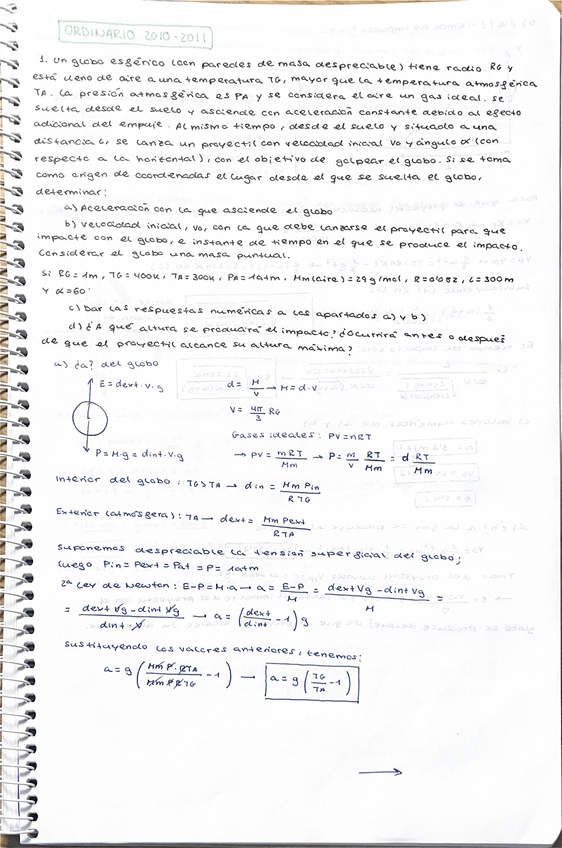 ORDINARIO 2010-2011
1. Un globo esférico (con paredes de masa despreciable) tiene radio RG y
está lleno de aire a una temperatura TG, mayor que la temperatura atmosférica
TA. La presión atmosférica es PA y se considera el aire un gas ideal. Se
suelta desde el suelo y asciende con aceleración constante debido al efecto
adicional del empuje. Al mismo tiempo, desde el suelo y situado a una
distancia L, se lanza un proyectil con velocidad inicial Vo y ángulo α (con
respecto a la horizontal), con el objetivo de golpear el globo. Si se toma
como origen de coordenadas el lugar desde el que se suelta el globo,
determinar:
a) Aceleración con la que asciende el globo
b) Velocidad inicial, Vo, con la que debe lanzarse el proyectil para que
impacte con el globo, e instante de tiempo en el que se produce el impacto.
Considerar el globo una masa puntual.
Si RG = 1m, TG = 400K, TA = 300K, PA = 1atm, Mm(aire) = 29 g/mol, R = 0'082, L = 300m
y α = 60º
c) Dar las respuestas numéricas a los apartados a) y b)
d) ¿A qué altura se producirá el impacto? ¿Ocurrirá antes o después
de que el proyectil alcance su altura máxima?
a) ¿a? del globo
E = dext · V · g
d = M/V → M = d · V
V = 4π/3 RG
Gases ideales: PV = nRT
→ PV = mRT/Mm → P = m/V RT/Mm = d RT/Mm
P = M · g = dint · V · g
Interior del globo: TG > TA → din = Mm Pin / R TG
Exterior (atmósfera): TA → dext = Mm Pext / R TA
Suponemos despreciable la tensión superficial del globo;
luego Pin = Pext = Pat = P = 1atm
2ª Ley de Newton: E - P = M · a → a = E-P / M = dext Vg - dint Vg / M =
= dext Vg - dint Vg / dint · V → a = (dext/dint - 1) g
Sustituyendo los valores anteriores, tenemos:
a = g (Mm P · R TA / Mm P R TG - 1) → a = g (TG/TA - 1)
→